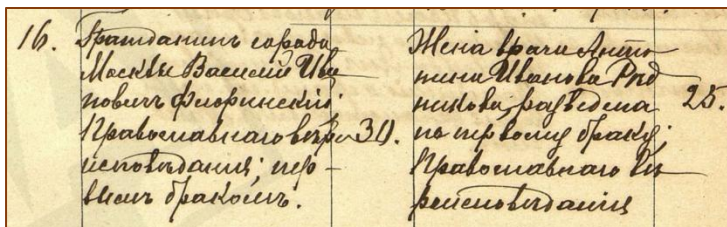 16.
Гражданинъ города
Москвы Василій Ива
новичъ Флоринскій
Православнаго вѣро
исповѣданія; пер-
вымъ бракомъ.
30.
Жена врача Анто
нина Иванова Руд
никова, разведена
по первому браку;
Православнаго вѣ
роисповѣданія
25.